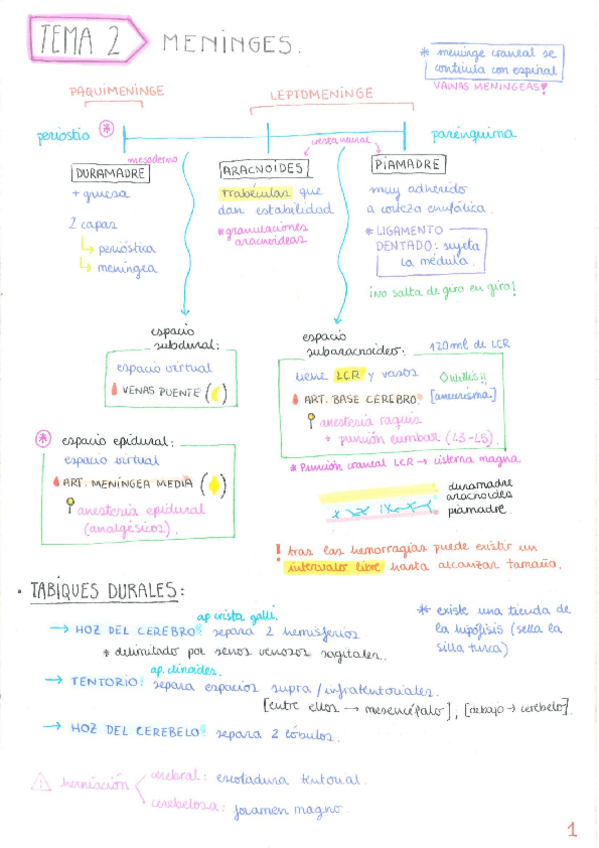 TEMA 2 MENINGES.
* meninge craneal se
continúa con espinal
VAINAS MENINGEAS!
PAQUIMENINGE
LEPTOMENINGE
periostio *
cresta neural
parénquima
mesodermo
DURAMADRE
+ gruesa
2 capas
↳ perióstica
↳ meníngea
ARACNOIDES
trabéculas que
dan estabilidad
* granulaciones
aracnoideas
PIAMADRE
muy adherido
a corteza encefálica.
* LIGAMENTO
DENTADO: sujeta
la médula.
¡No salta de giro en giro!
espacio
subdural:
espacio virtual
VENAS PUENTE ( )
espacio
subaracnoideo:
120ml de LCR
tiene LCR y vasos
ART. BASE CEREBRO
◇ Willis!!
[aneurisma.]
anestesia raquis
* punción lumbar (L3-L5).
* Punción craneal LCR → cisterna magna
* espacio epidural:
espacio virtual
ART. MENÍNGEA MEDIA ( )
anestesia epidural
(analgésicos).
duramadre
aracnoides
piamadre.
! tras las hemorragias puede existir un
intervalo libre hasta alcanzar tamaño.
• TABIQUES DURALES:
ap crista galli.
→ HOZ DEL CEREBRO: separa 2 hemisferios
* delimitado por senos venosos sagitales.
* existe una tienda de
la hipófisis (sella la
silla turca)
ap. clinoides.
→ TENTORIO: separa espacios supra/infratentoriales.
[entre ellos → mesencéfalo], [debajo → cerebelo].
→ HOZ DEL CEREBELO: separa 2 lóbulos.
herniación
cerebral: escotadura tentorial.
cerebelosa: foramen magno.
1